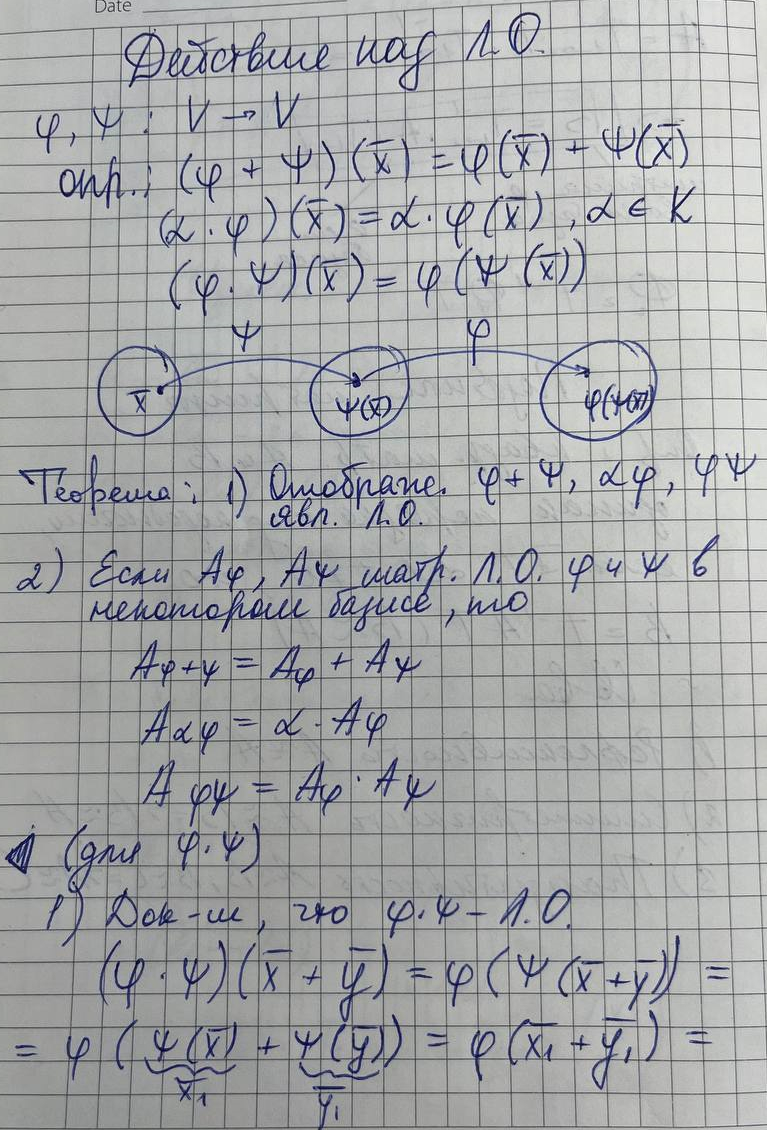 Date
Действие над Л.О.
φ, ψ : V → V
опр.: (φ + ψ)(x̄) = φ(x̄) + ψ(x̄)
(α · φ)(x̄) = α · φ(x̄), α ∈ K
(φ · ψ)(x̄) = φ(ψ(x̄))
ψ φ
x̄ ψ(x̄) φ(ψ(x̄))
Теорема: 1) Отображ. φ + ψ, αφ, φψ
явл. Л.О.
2) Если Aφ, Aψ матр. Л.О. φ и ψ в
некотором базисе, то
Aφ+ψ = Aφ + Aψ
Aαφ = α · Aφ
Aφψ = Aφ · Aψ
(для φ · ψ)
1) Док-м, что φ · ψ - Л.О.
(φ · ψ)(x̄ + ȳ) = φ(ψ(x̄ + ȳ)) =
= φ(ψ(x̄) + ψ(ȳ)) = φ(x̄₁ + ȳ₁) =
x̄₁ ȳ₁